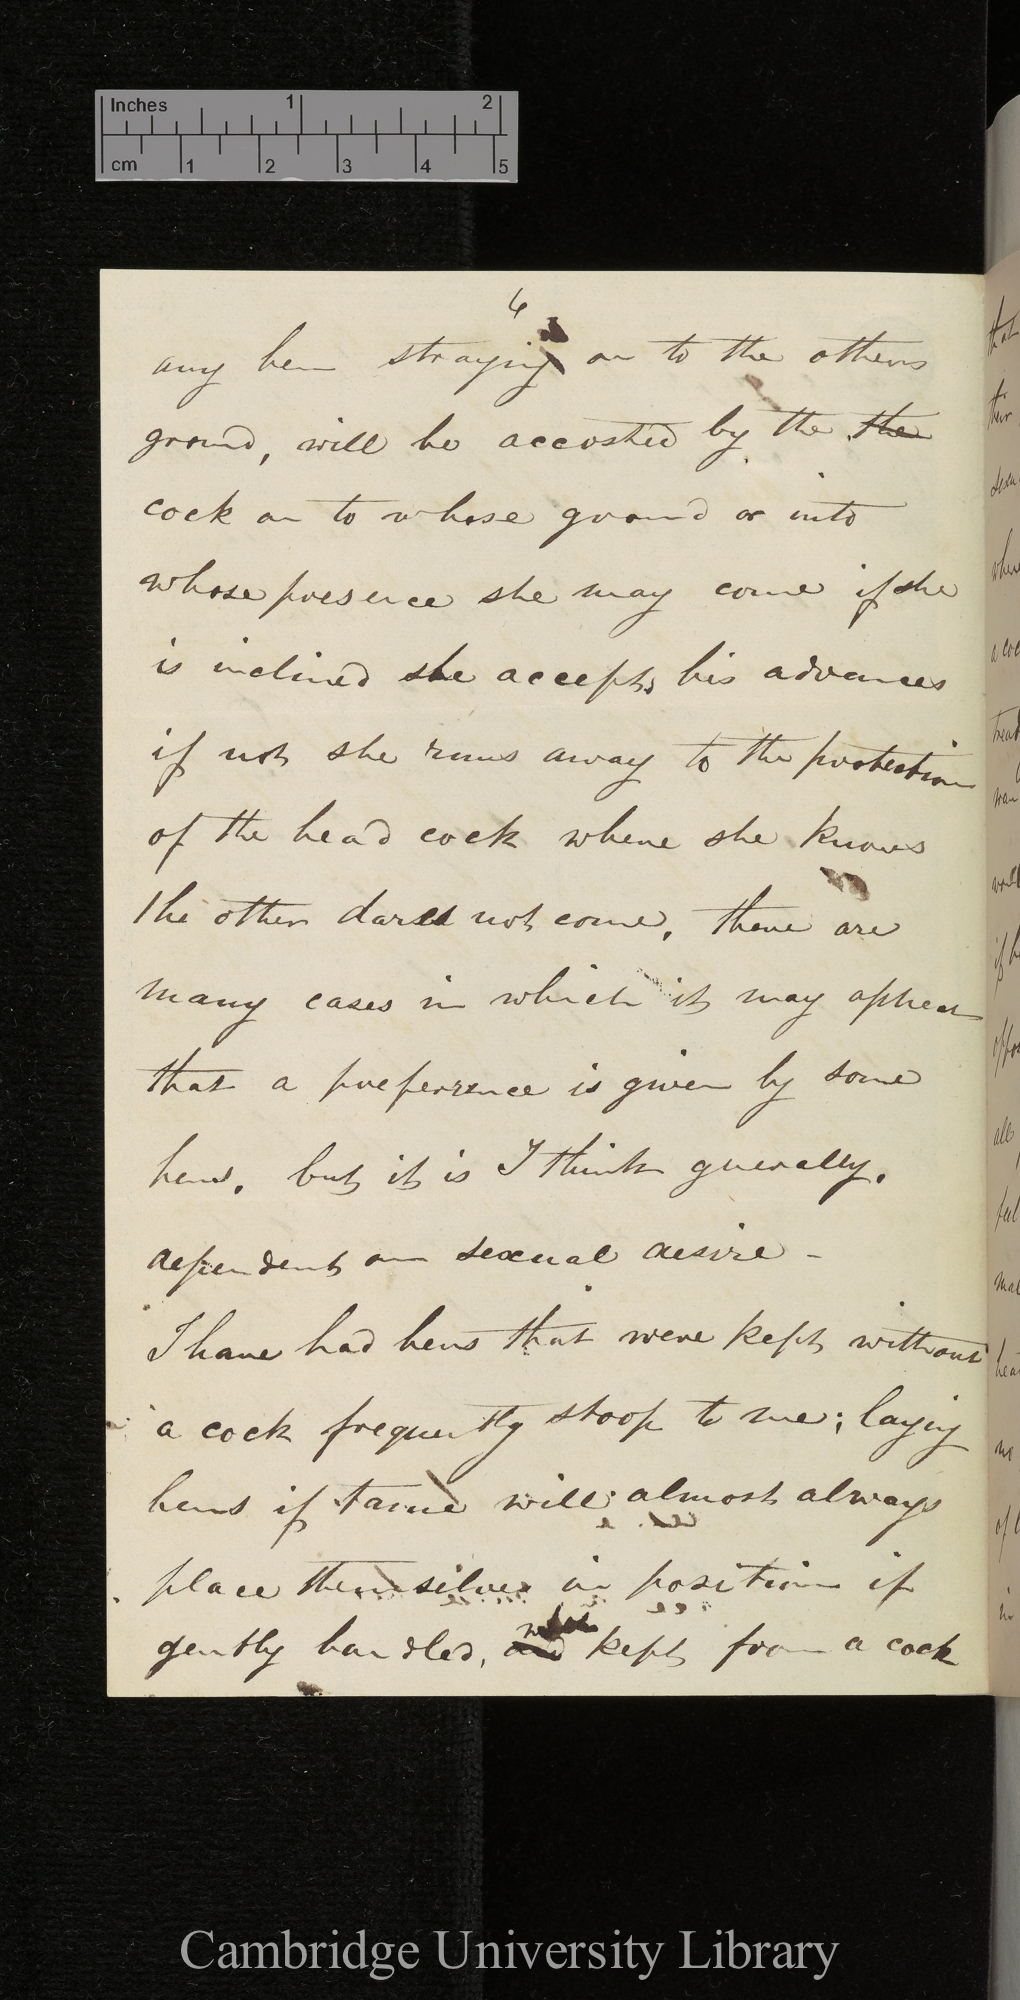 Inches 1 2
cm 1 2 3 4 5
6
any hen straying on to the others
ground, will be accosted by the the
cock on to whose ground or into
whose presence she may come if she
is inclined she accepts his advances
if not she runs away to the protection
of the head cock where she knows
the other dares not come, there are
many cases in which it may appear
that a preferrence is given by some
hens, but it is I think generally,
dependent on sexual desire –
I have had hens that were kept without
a cock frequently stoop to me; laying
hens if tame will almost always
place themselves in position if
gently handled, and when kept from a cock
Cambridge University Library